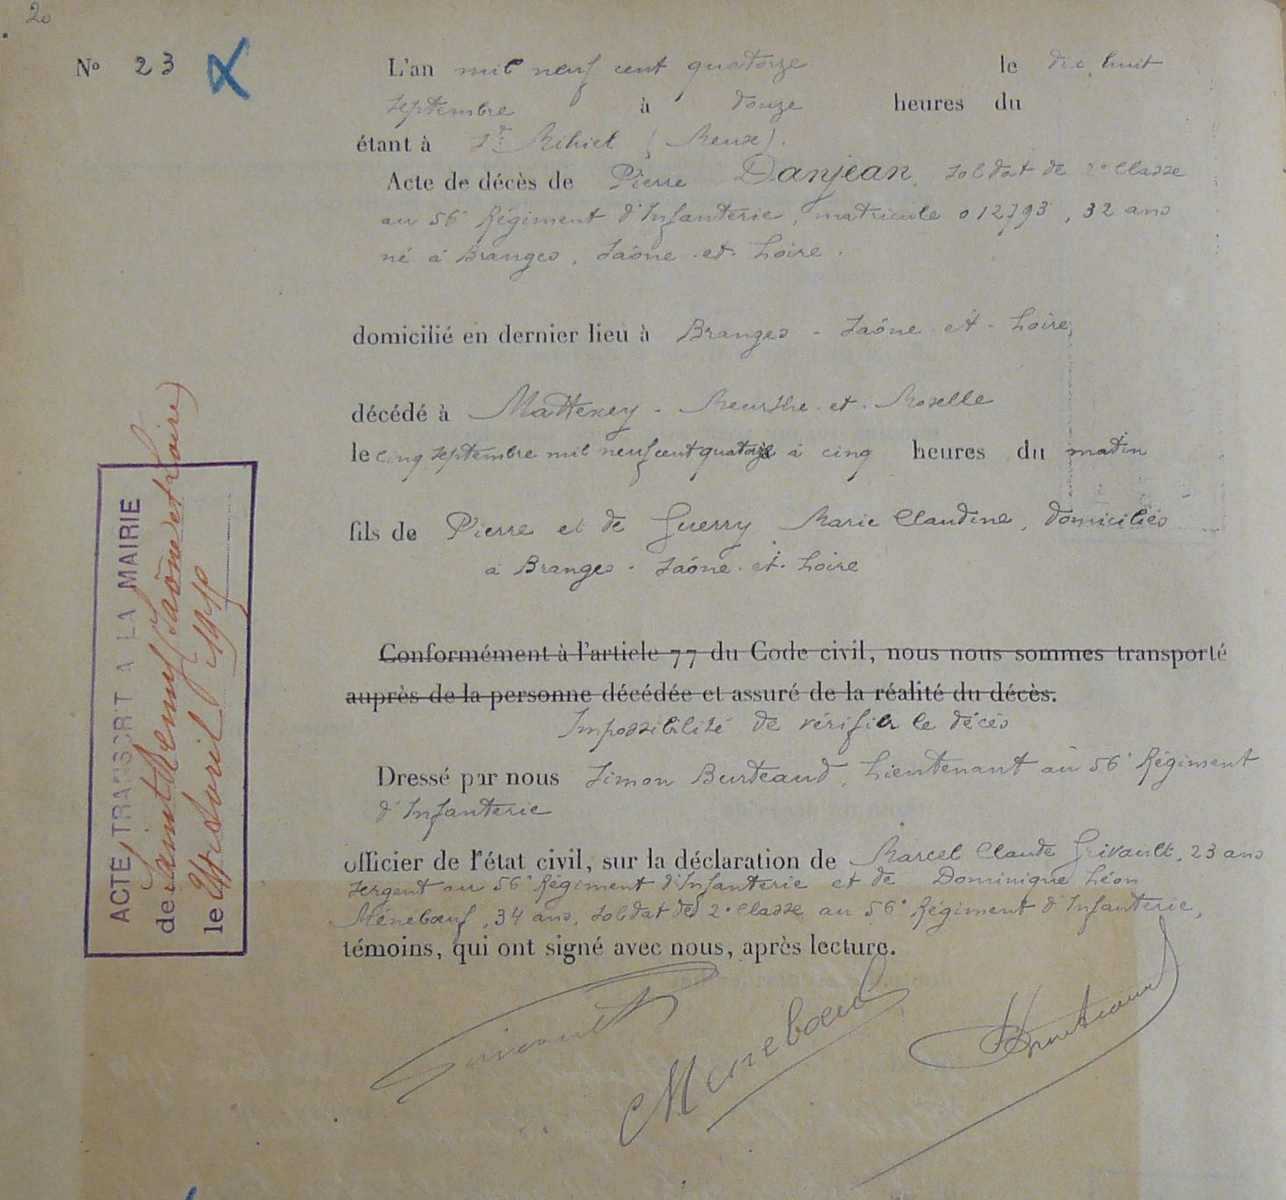 20
N° 23
L'an mil neuf cent quatorze le dix huit
septembre à douze heures du
étant à St Mihiel (Meuse).
Acte de décès de Pierre Danjean, soldat de 2e Classe
au 56e Régiment d'Infanterie, matricule 012793, 32 ans
né à Branges, Saône et Loire.
domicilié en dernier lieu à Branges - Saône et Loire,
décédé à Mattexey - Meurthe et Moselle
le cinq septembre mil neuf cent quatorze à cinq heures du matin
fils de Pierre et de Guerry Marie Claudine, domiciliés
à Branges - Saône et Loire
Conformément à l'article 77 du Code civil, nous nous sommes transporté
auprès de la personne décédée et assuré de la réalité du décès.
Impossibilité de vérifier le décès
Dressé par nous Simon Burteaud, Lieutenant au 56e Régiment
d'Infanterie
officier de l'état civil, sur la déclaration de Marcel Claude Grivault, 23 ans
sergent au 56e Régiment d'Infanterie et de Dominique Léon
Ménebœuf, 34 ans, soldat de 2e Classe au 56e Régiment d'Infanterie,
témoins, qui ont signé avec nous, après lecture.
Grivault
Menebœuf
Burteaud
ACTE TRANSCRIT A LA MAIRIE
de (Saône et Loire)
le avril